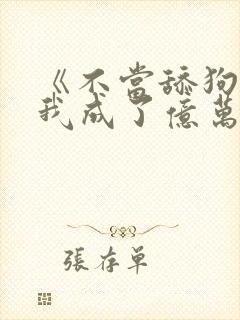 《不當舔狗
我成了億萬
張存單